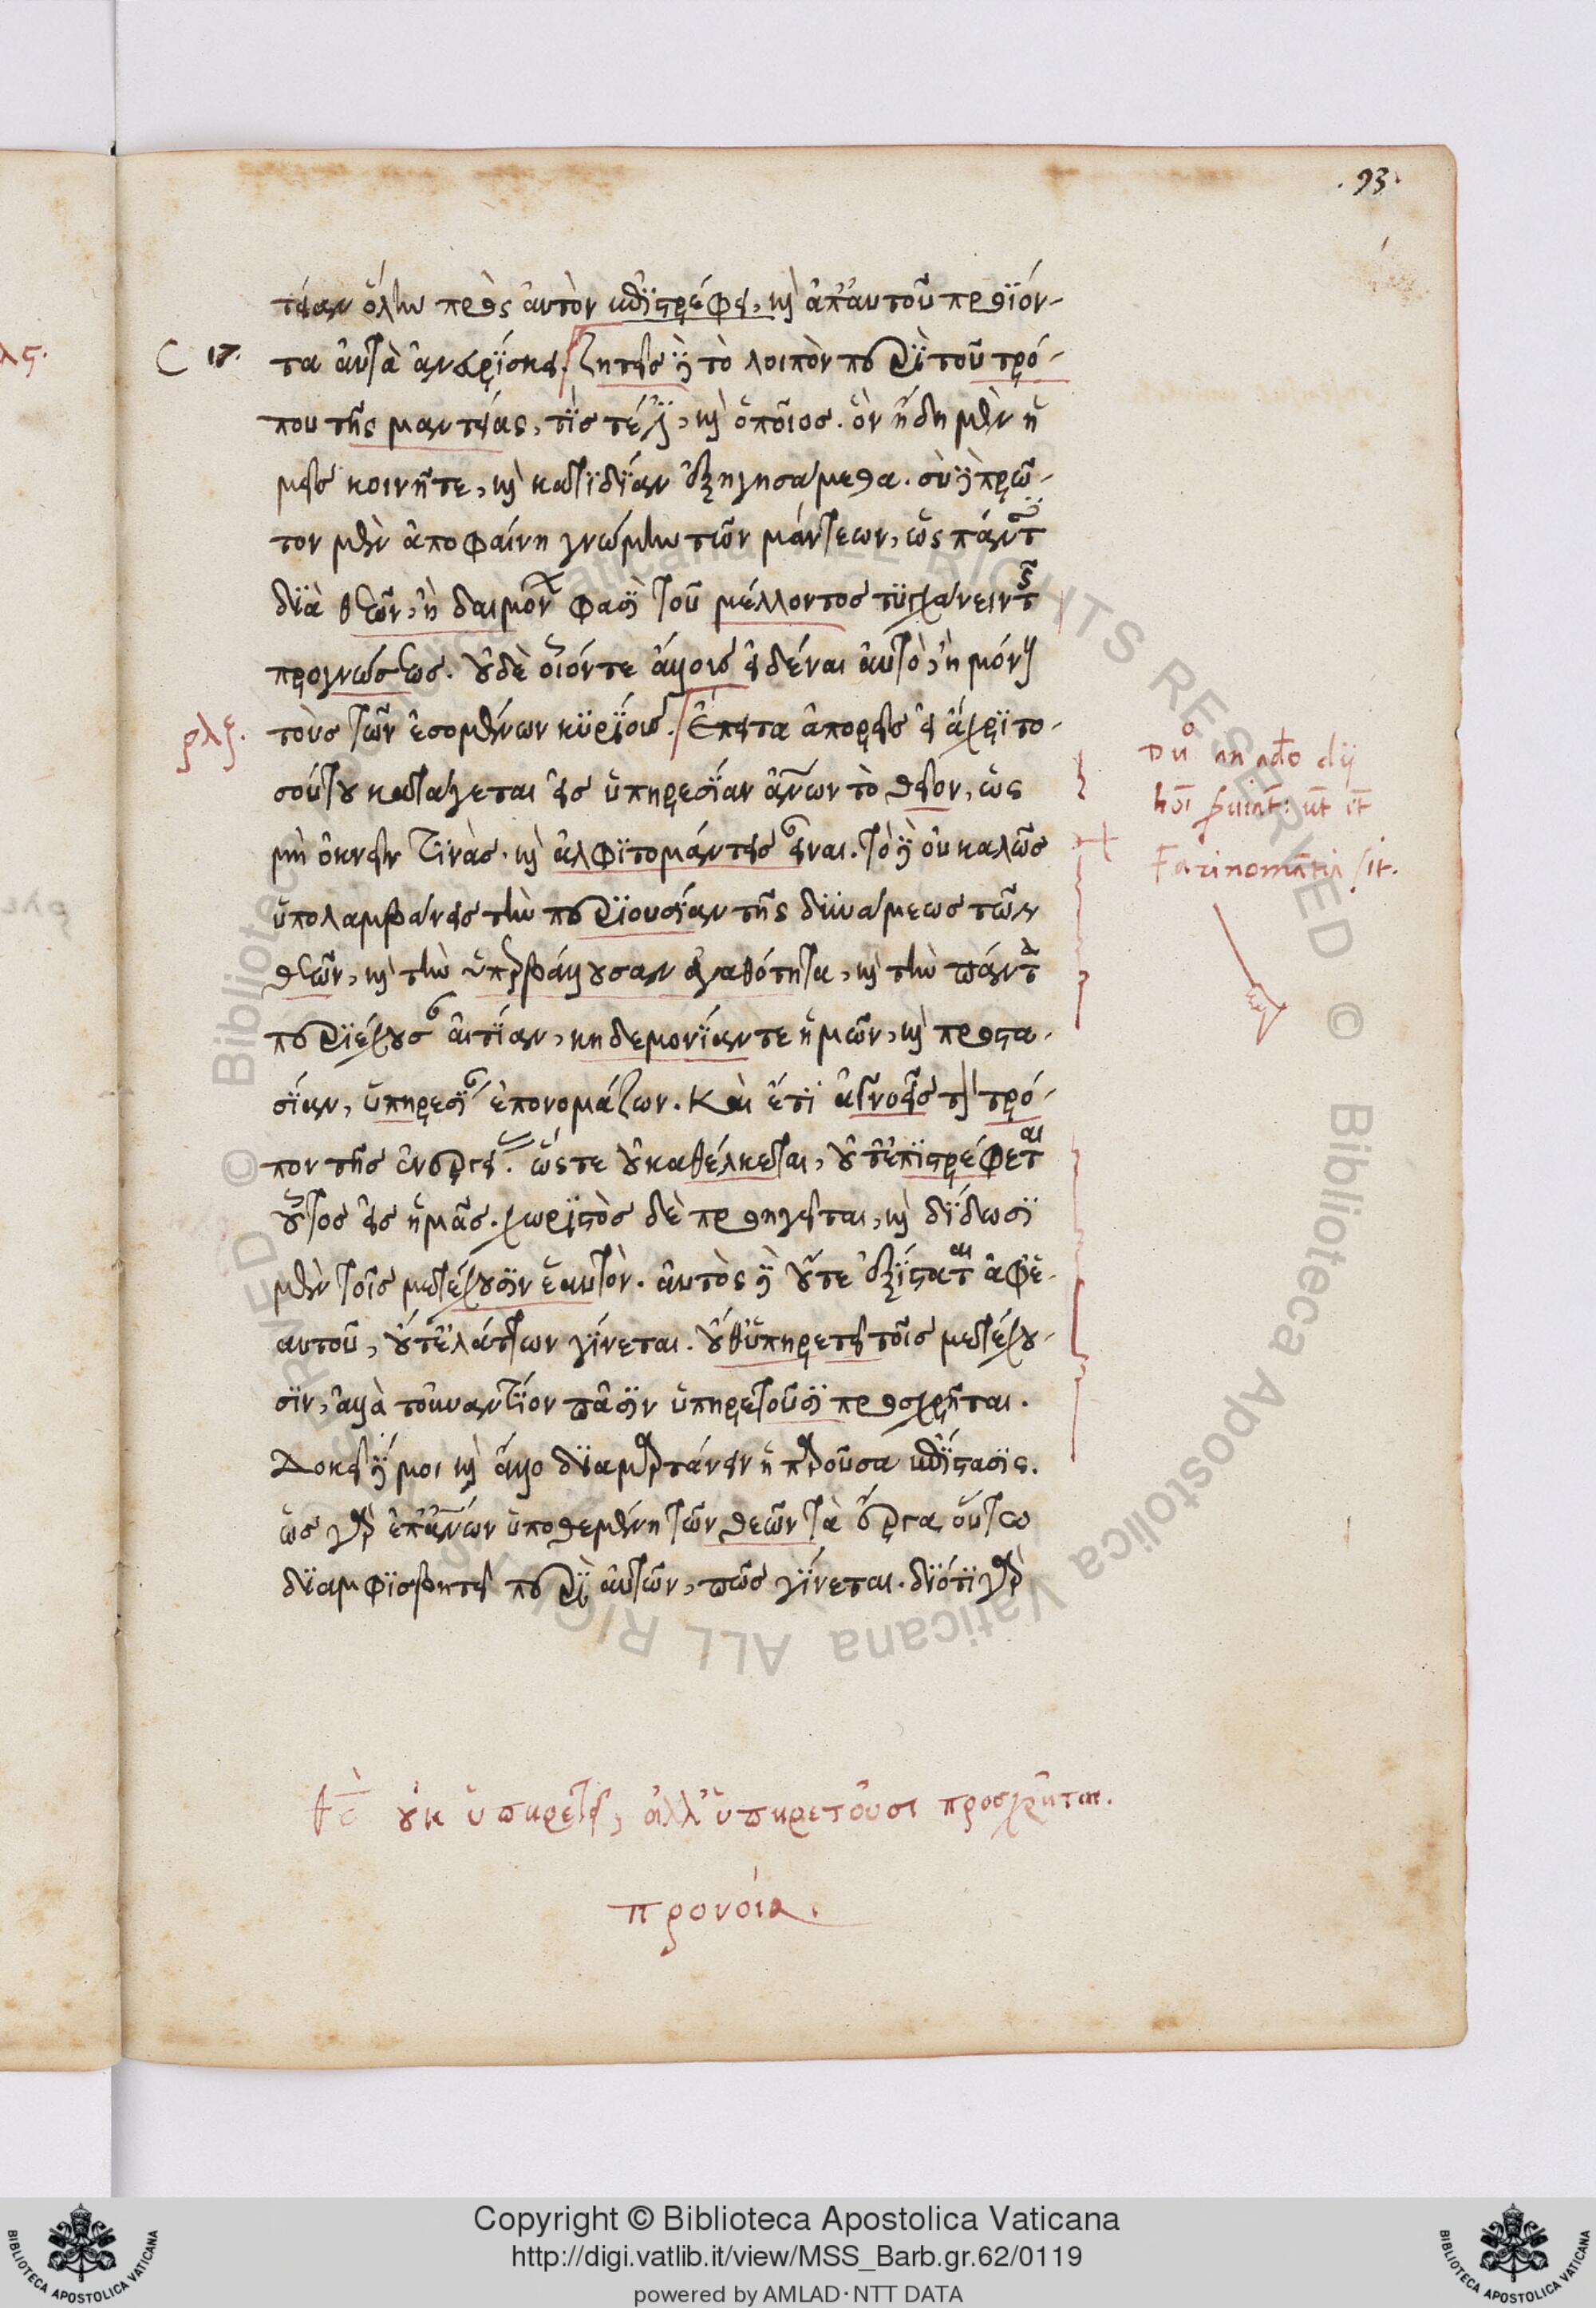 .93.
τείαν ὅλην πρὸς αὐτὸν ἐπιστρέφει, καὶ ἀπ' αὐτοῦ προϊόν-
C 17. τα αὐτὰ ἀνευρίσκει. ζητεῖς δὲ τὸ λοιπὸν περὶ τοῦ τρό-
που τῆς μαντείας, τίς τέ ἐστι, καὶ ὁποῖος. ὃν ἤδη μὲν ἡ
μεῖς κοινῇ τε, καὶ κατ' ἰδίαν ἐξηγησάμεθα. σὺ δὲ πρῶ-
τον μὲν ἀποφαίνῃ γνώμην τῶν μάντεων, ὡς πάντων
διὰ θεῶν, ἢ δαιμόνων φασὶ τοῦ μέλλοντος τυγχάνειν τῆς
προγνώσεως. οὐδὲ οἷόν τε ἄλλοις εἰδέναι αὐτὸ, ἢ μόνοις
ρλζ. τοῖς τῶν ἐσομένων κυρίοις. Ἔπειτα ἀπορεῖς εἰ ἄχρι το-
σούτου κατάγεται εἰς ὑπηρεσίαν ἀνων τὸ θεῖον, ὡς
μὴ ὀκνεῖν τινὰς καὶ ἀλφιτομάντεις εἶναι. τὸ δὲ οὐ καλῶς
ὑπολαμβάνεις τὴν περιουσίαν τῆς δυνάμεως τῶν
θεῶν, καὶ τὴν ὑπερβάλλουσαν ἀγαθότητα, καὶ τὴν πάντα
περιέχουσαν αἰτίαν, κηδεμονίαν τε ἡμῶν, καὶ προστα-
σίαν, ὑπηρεσίαν ἐπονομάζων. Καὶ ἔτι ἀγνοεῖς τὸν τρό-
πον τῆς ἐνεργείας. ὥς τε οὐ καθέλκεται, οὔτ' ἐπιστρέφεται
οὗτος εἰς ἡμᾶς. χωριστὸς δὲ προηγεῖται, καὶ δίδωσι
μὲν τοῖς μετέχουσιν ἑαυτὸν. αὐτὸς δὲ οὔτε ἐξίσταται ἀφ' ἑ-
αυτοῦ, οὔτ' ἐλάττων γίνεται. οὔθ' ὑπηρετεῖ τοῖς μετέχου-
σιν, ἀλλὰ τοὐναντίον πᾶσιν ὑπηρετοῦσι προσχρῆται.
Δοκεῖ δέ μοι καὶ ἄλλο διαμαρτάνειν ἡ παροῦσα ἐπίστασις.
ὡς γὰρ ἐπ' ἀνων ὑποθεμένη τῶν θεῶν τὰ ἔργα, οὕτω
διαμφισβητεῖ περὶ αὐτῶν, πῶς γίνεται. διότι γὰρ
dii
Farinomantia sit.
θς οὐκ ὑπηρετεῖ, ἀλλ' ὑπηρετοῦσι προσχρῆται.
προνοία.
Copyright © Biblioteca Apostolica Vaticana
http://digi.vatlib.it/view/MSS_Barb.gr.62/0119
powered by AMLAD·NTT DATA